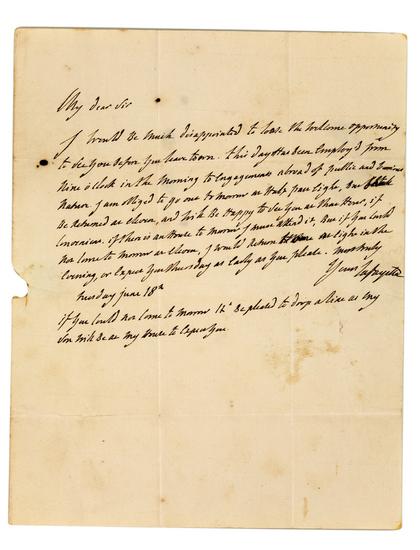 My dear Sir
I Would Be Much disappointed to loose the Welcome opportunity
to See You Before You leave town. this day Has Been Employ'd from
Nine o'clock in the Morning to Engagements abroad of public and
Nature. I am obliged to go out to morrow at Half past Eight, But
Be Returned at eleven, and Will Be Happy to See You at that Hour, if
Convenient. if there is an House to morrow I must attend it, But if You Could
not Come to morrow at eleven, I would Return at Eight in the
Evening, or Expect You thursday as Early as You please. Most truly
Yours Lafayette
tuesday june 18th
if You Could not Come to morrow Be pleased to drop a line as My
Son Will Be at My House to Expect You